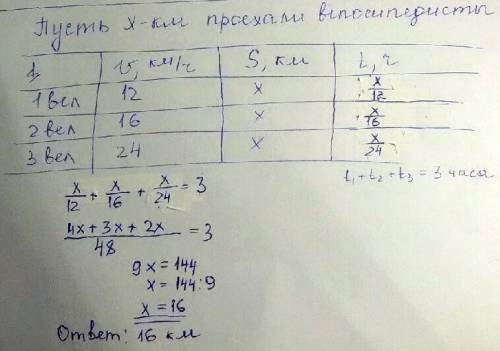 Пусть x-км проехали велосипедисты
v, км/ч S, км t, ч
1 вел 12 x x/12
2 вел 16 x x/16
3 вел 24 x x/24
t₁+t₂+t₃ = 3 часа
x/12 + x/16 + x/24 = 3
4x+3x+2x/48 = 3
9x = 144
x = 144:9
x = 16
Ответ: 16 км